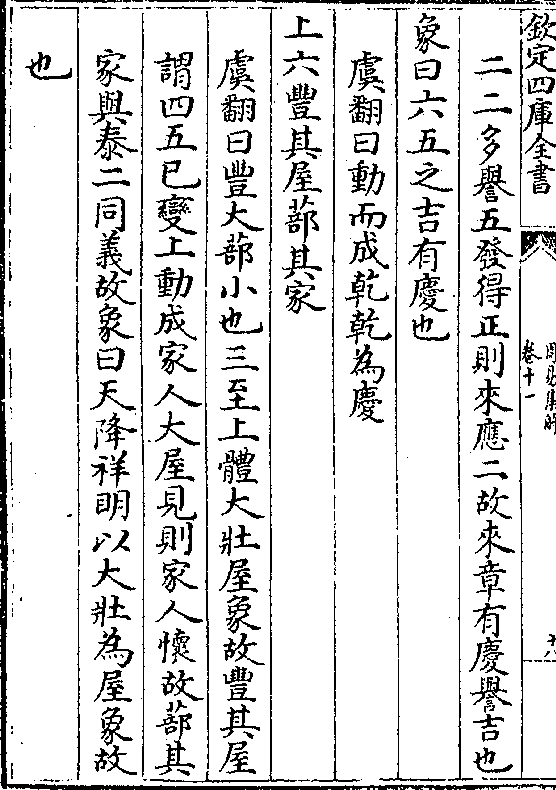 欽定四庫全書
周易集解
卷十一
二二多譽五發得正則來應二故來章有慶譽吉也
象曰六五之吉有慶也
虞翻曰動而成乾乾為慶
上六豐其屋蔀其家
虞翻曰豐大蔀小也三至上體大壯屋象故豐其屋
謂四五已變上動成家人大屋見則家人懷故蔀其
家與泰二同義故象曰天降祥明以大壯為屋象故
也